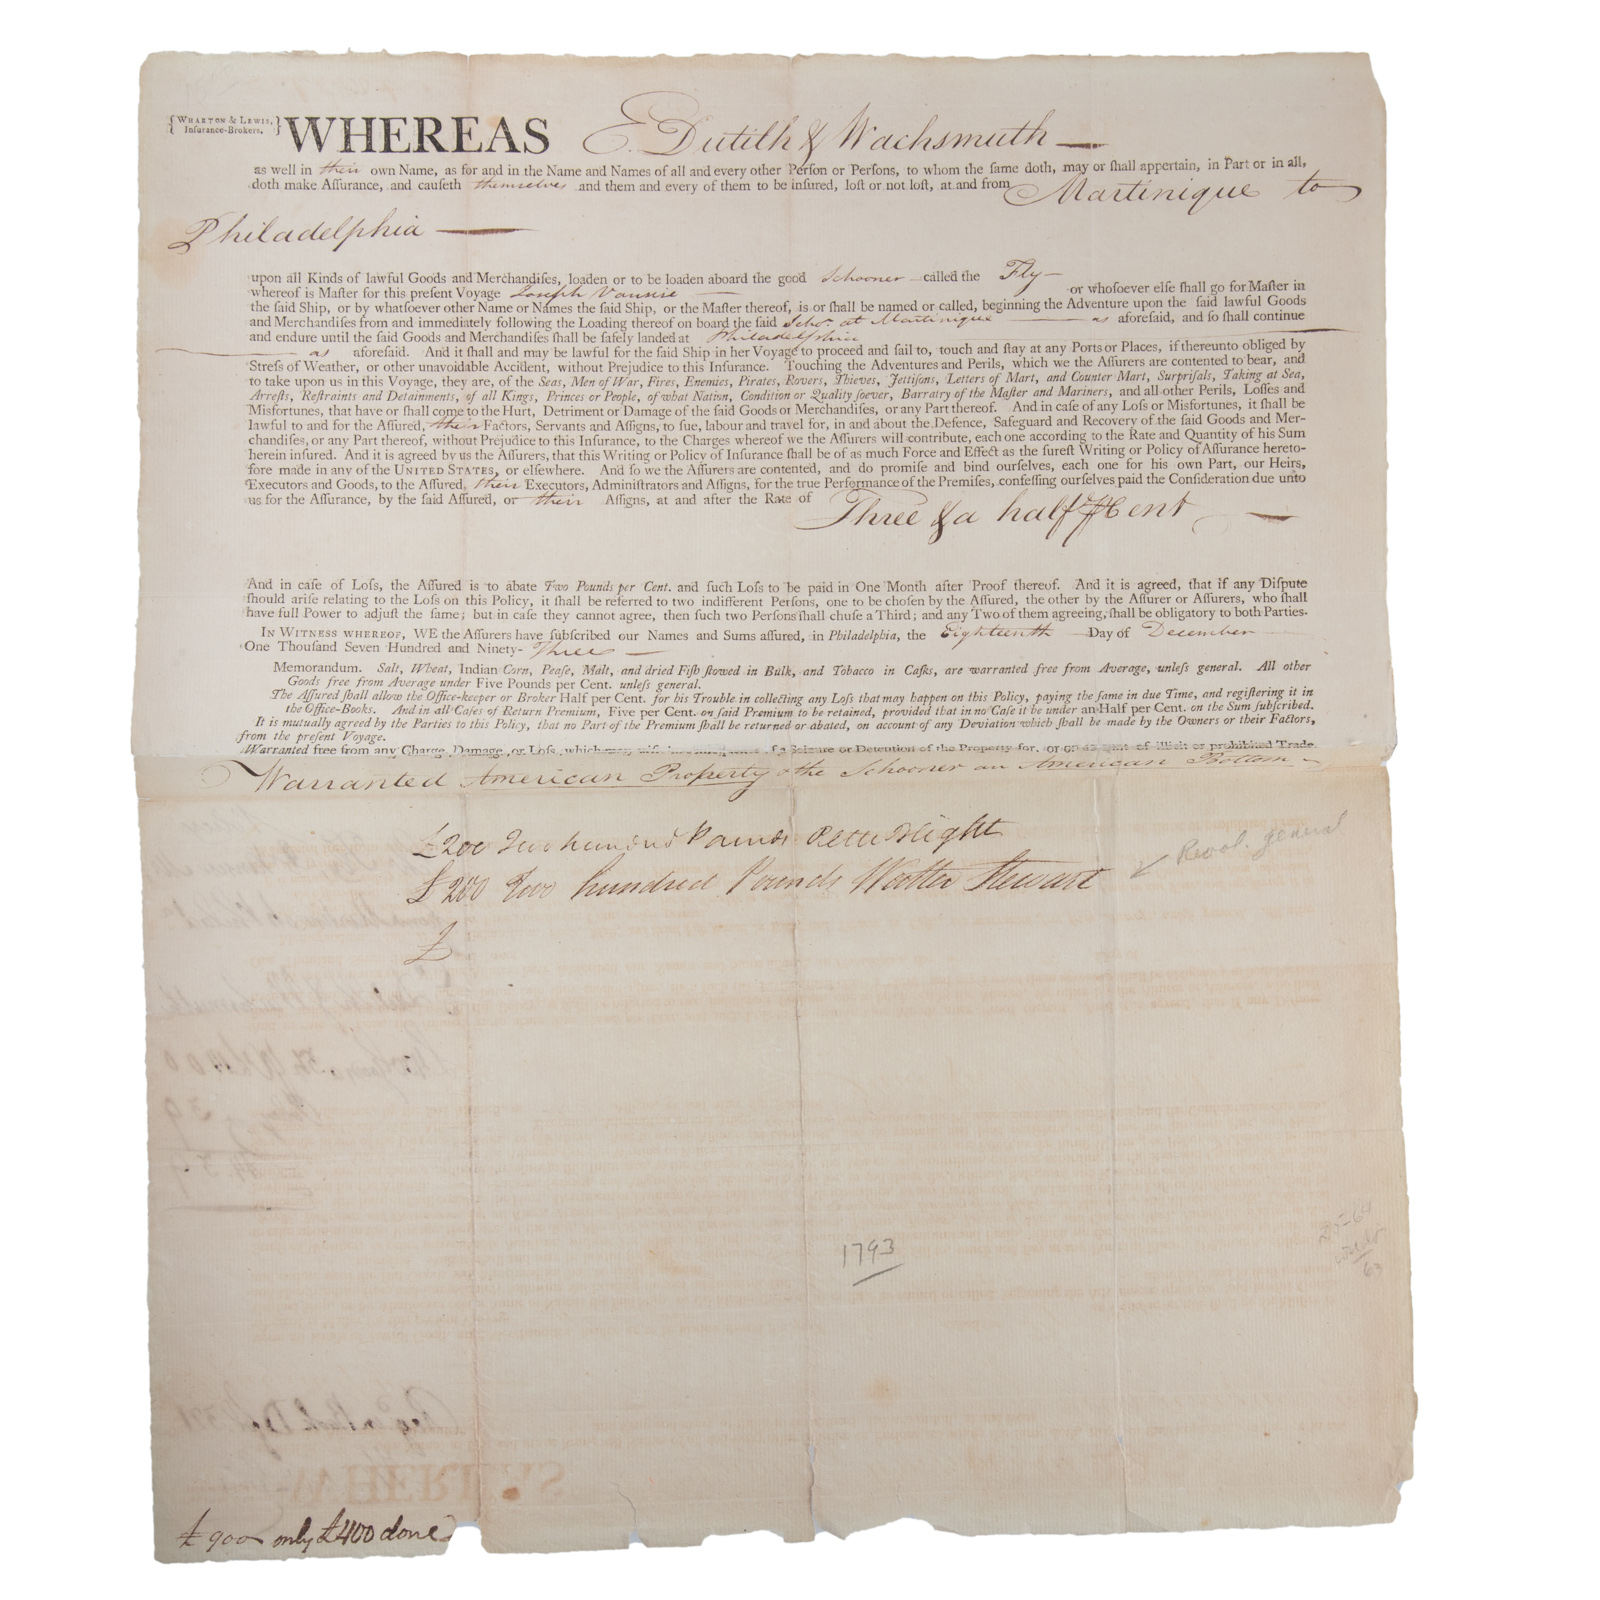 {WHARTON & LEWIS, Inſurance-Brokers.} WHEREAS E. Dutilh & Wachsmuth
as well in their own Name, as for and in the Name and Names of all and every other Perſon or Perſons, to whom the ſame doth, may or ſhall appertain, in Part or in all,
doth make Aſſurance, and cauſeth themselves and them and every of them to be inſured, loſt or not loſt, at and from Martinique to
Philadelphia
upon all Kinds of lawful Goods and Merchandiſes, loaden or to be loaden aboard the good Schooner called the Fly
whereof is Maſter for this preſent Voyage Joseph Vannise or whoſoever elſe ſhall go for Maſter in
the ſaid Ship, or by whatſoever other Name or Names the ſaid Ship, or the Maſter thereof, is or ſhall be named or called, beginning the Adventure upon the ſaid lawful Goods
and Merchandiſes from and immediately following the Loading thereof on board the ſaid Schr. at Martinique as aforeſaid, and ſo ſhall continue
and endure until the ſaid Goods and Merchandiſes ſhall be ſafely landed at Philadelphia
as aforeſaid. And it ſhall and may be lawful for the ſaid Ship in her Voyage to proceed and ſail to, touch and ſtay at any Ports or Places, if thereunto obliged by
Streſs of Weather, or other unavoidable Accident, without Prejudice to this Inſurance. Touching the Adventures and Perils, which we the Aſſurers are contented to bear, and
to take upon us in this Voyage, they are, of the Seas, Men of War, Fires, Enemies, Pirates, Rovers, Thieves, Jettiſons, Letters of Mart, and Counter Mart, Surpriſals, Taking at Sea,
Arreſts, Reſtraints and Detainments, of all Kings, Princes or People, of what Nation, Condition or Quality ſoever, Barratry of the Maſter and Mariners, and all other Perils, Loſſes and
Misfortunes, that have or ſhall come to the Hurt, Detriment or Damage of the ſaid Goods or Merchandiſes, or any Part thereof. And in caſe of any Loſs or Misfortunes, it ſhall be
lawful to and for the Aſſured, their Factors, Servants and Aſſigns, to ſue, labour and travel for, in and about the Defence, Safeguard and Recovery of the ſaid Goods and Mer-
chandiſes, or any Part thereof, without Prejudice to this Inſurance, to the Charges whereof we the Aſſurers will contribute, each one according to the Rate and Quantity of his Sum
herein inſured. And it is agreed by us the Aſſurers, that this Writing or Policy of Inſurance ſhall be of as much Force and Effect as the ſureſt Writing or Policy of Aſſurance hereto-
fore made in any of the UNITED STATES, or elſewhere. And ſo we the Aſſurers are contented, and do promiſe and bind ourſelves, each one for his own Part, our Heirs,
Executors and Goods, to the Aſſured, their Executors, Adminiſtrators and Aſſigns, for the true Performance of the Premiſes, confeſſing ourſelves paid the Conſideration due unto
us for the Aſſurance, by the ſaid Aſſured, or their Aſſigns, at and after the Rate of Three & a half P Cent
And in caſe of Loſs, the Aſſured is to abate Two Pounds per Cent. and ſuch Loſs to be paid in One Month after Proof thereof. And it is agreed, that if any Diſpute
ſhould ariſe relating to the Loſs on this Policy, it ſhall be referred to two indifferent Perſons, one to be choſen by the Aſſured, the other by the Aſſurer or Aſſurers, who ſhall
have full Power to adjuſt the ſame; but in caſe they cannot agree, then ſuch two Perſons ſhall chuſe a Third; and any Two of them agreeing, ſhall be obligatory to both Parties.
IN WITNESS WHEREOF, WE the Aſſurers have ſubſcribed our Names and Sums aſſured, in Philadelphia, the Eighteenth Day of December
One Thouſand Seven Hundred and Ninety-Three
Memorandum. Salt, Wheat, Indian Corn, Peaſe, Malt, and dried Fiſh ſtowed in Bulk, and Tobacco in Caſks, are warranted free from Average, unleſs general. All other
Goods free from Average under Five Pounds per Cent. unleſs general.
The Aſſured ſhall allow the Office-keeper or Broker Half per Cent. for his Trouble in collecting any Loſs that may happen on this Policy, paying the ſame in due Time, and regiſtering it in
the Office-Books. And in all Caſes of Return Premium, Five per Cent. on ſaid Premium to be retained, provided that in no Caſe it be under an Half per Cent. on the Sum ſubſcribed.
It is mutually agreed by the Parties to this Policy, that no Part of the Premium ſhall be returned or abated, on account of any Deviation which ſhall be made by the Owners or their Factors,
from the preſent Voyage.
Warranted free from any Charge, Damage, or Loſs, which may of a Seizure or Detention of the Property for, or on account of illicit or prohibited Trade.
Warranted American Property & the Schooner an American Bottom
£200 Two hundred Pounds Peter Blight
£200 Two hundred Pounds Walter Stewart Revol. general
£
1793
63
£900 only £400 done